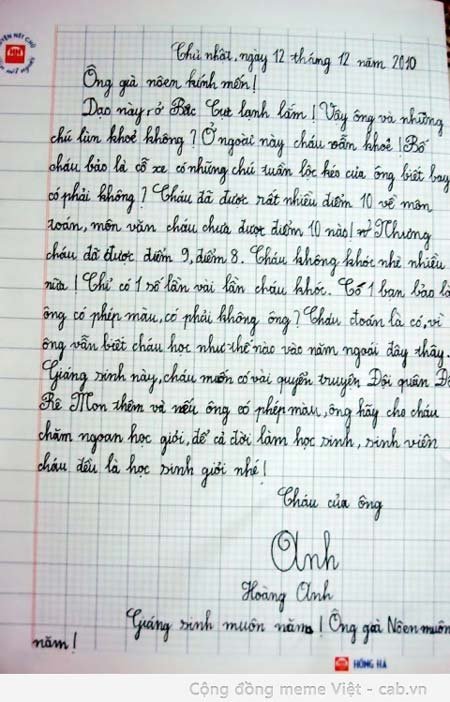 LUYỆN NÉT CHỮ
Chủ nhật, ngày 12 tháng 12 năm 2010
Ông già nôen kính mến!
Dạo này, ở Bắc Cực lạnh lắm! Vậy ông và những
chú lùn khoẻ không? Ở ngoài này cháu vẫn khoẻ! Bố
cháu bảo là cỗ xe có những chú tuần lộc kéo của ông biết bay
có phải không? Cháu đã được rất nhiều điểm 10 về môn
toán, môn văn cháu chưa được điểm 10 nào! Nhưng
cháu đã được điểm 9, điểm 8. Cháu không khóc nhè nhiều
nữa! Chỉ có 1 số lần vài lần cháu khóc. Có 1 bạn bảo là
ông có phép màu, có phải không ông? Cháu đoán là có, vì
ông vẫn biết cháu học như thế nào vào năm ngoái đây thây.
Giáng sinh này, cháu muốn có vài quyển truyện Đội quân Đô
Rê Mon thêm và nếu ông có phép màu, ông hãy cho cháu
chăm ngoan học giỏi, để cả đời làm học sinh, sinh viên
cháu đều là học sinh giỏi nhé!
Cháu của ông
Anh
Hoàng Anh
Giáng sinh muôn năm! Ông già Nôen muôn
năm!
HỒNG HÀ
Cộng đồng meme Việt - cab.vn